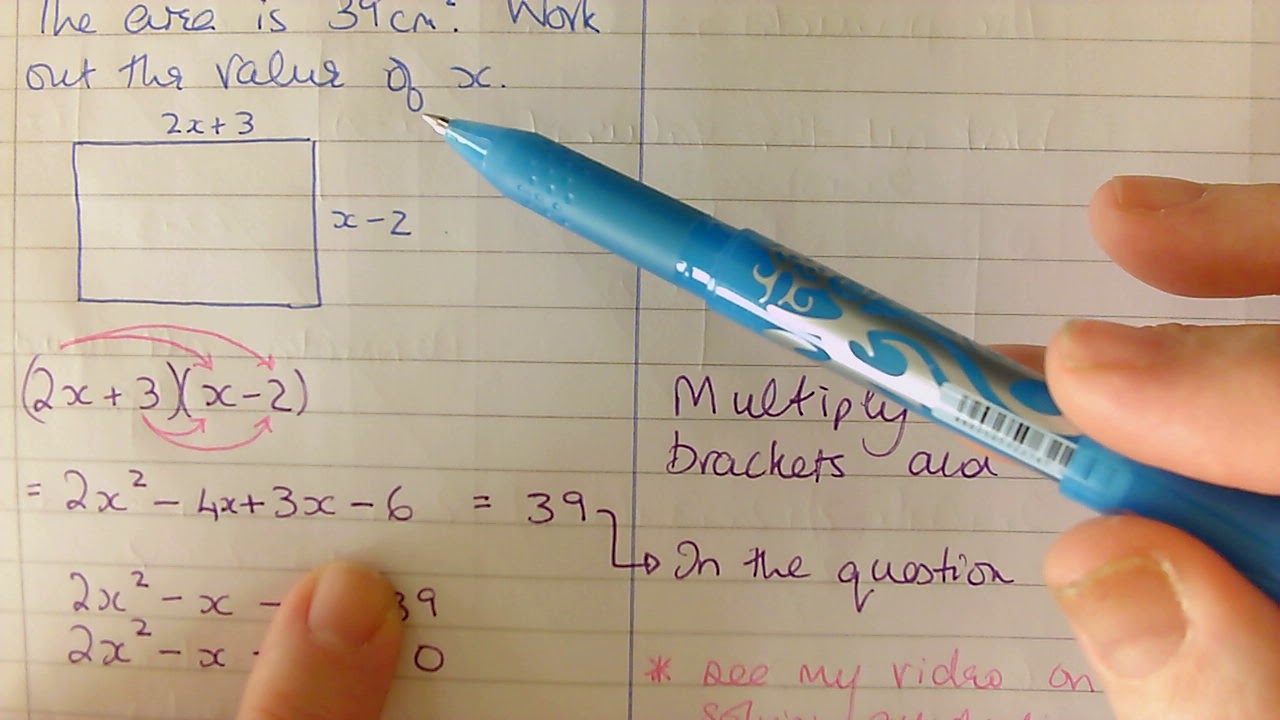 The area is 39cm². Work
out the value of x.
2x+3
x-2
(2x+3)(x-2)
= 2x² - 4x+3x-6 = 39
2x² - x - 39
2x² - x - 0
Multiply
brackets and
In the question
* see my video on